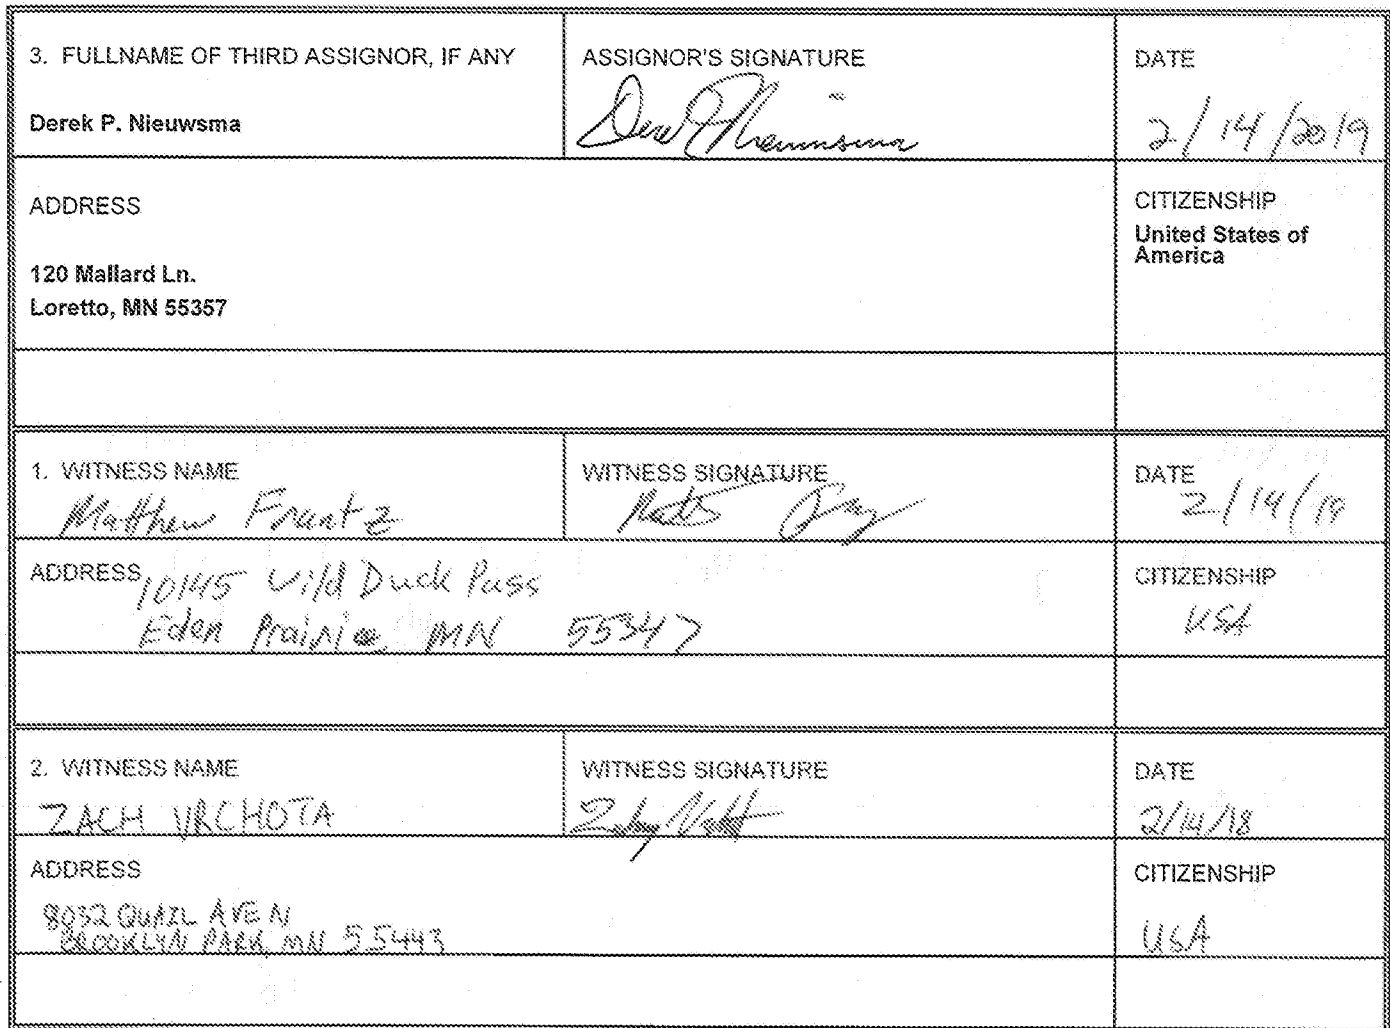 3. FULLNAME OF THIRD ASSIGNOR, IF ANY
Derek P. Nieuwsma
ASSIGNOR'S SIGNATURE
DATE
2/14/2019
ADDRESS
120 Mallard Ln.
Loretto, MN 55357
CITIZENSHIP
United States of
America
1. WITNESS NAME
Matthew Frantz
WITNESS SIGNATURE
DATE
2/14/19
ADDRESS
10145 Wild Duck Pass
Eden Prairie MN 55347
CITIZENSHIP
USA
2. WITNESS NAME
ZACH VRCHOTA
WITNESS SIGNATURE
DATE
2/14/18
ADDRESS
8032 QUAIL AVE N
BROOKLYN PARK MN 55443
CITIZENSHIP
USA